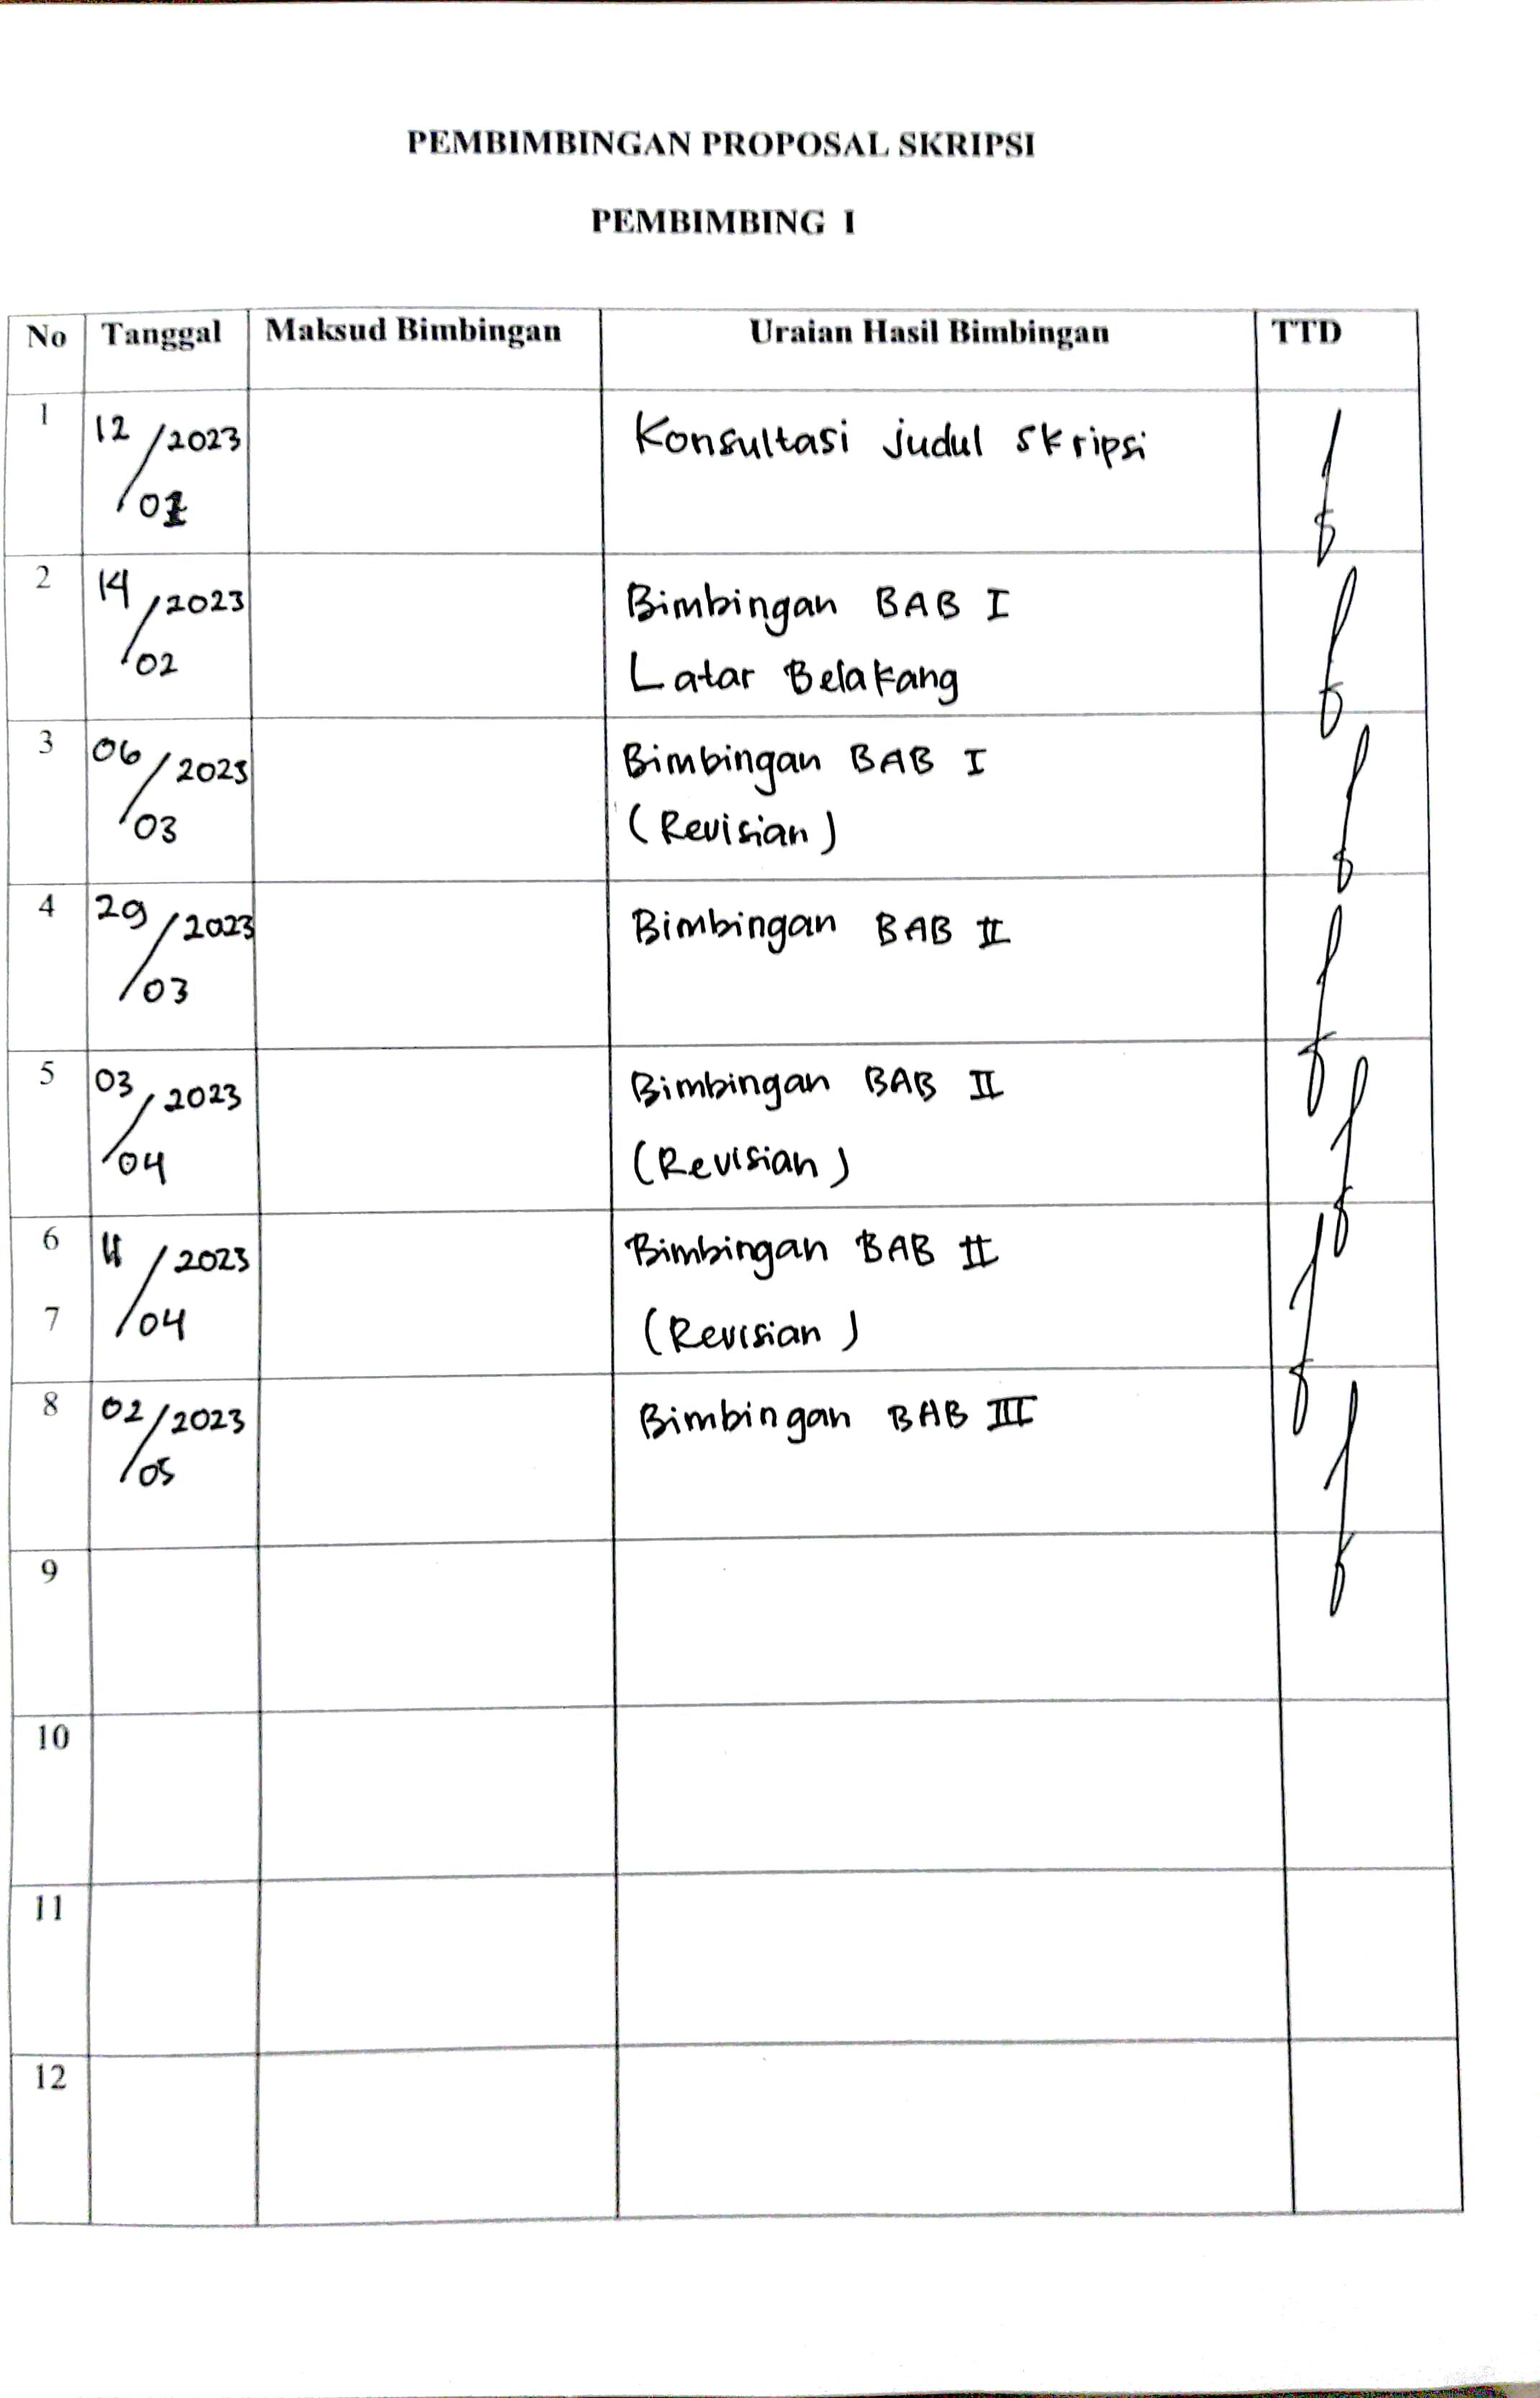 PEMBIMBINGAN PROPOSAL SKRIPSI
PEMBIMBING I
No Tanggal Maksud Bimbingan Uraian Hasil Bimbingan TTD
1 12/01/2023 Konsultasi judul skripsi
2 14/02/2023 Bimbingan BAB I
Latar Belakang
3 06/03/2023 Bimbingan BAB I
(Revisian)
4 29/03/2023 Bimbingan BAB II
5 03/04/2023 Bimbingan BAB II
(Revisian)
6 11/04/2023 Bimbingan BAB II
7 (Revisian)
8 02/05/2023 Bimbingan BAB III
9
10
11
12